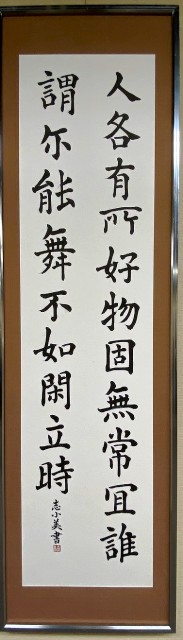 人各有所好物固無常冝誰
謂尓能舞不如閑立時
志小美書